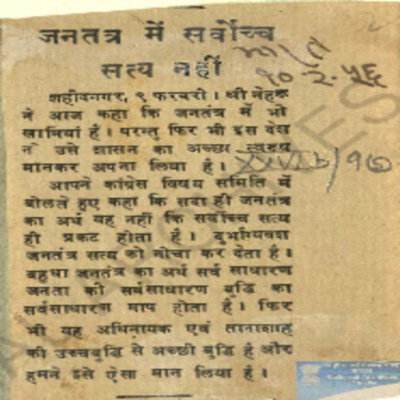 जनतंत्र में सर्वोच्च
सत्य नहीं
भारत
१०.२.५६
शहीदनगर, ९ फरवरी । श्री नेहरू
ने आज कहा कि जनतंत्र में भी
खामियां हैं । परन्तु फिर भी इस देश
ने उसे शासन का अच्छा स्वरूप
मानकर अपना लिया है ।
आपने कांग्रेस विषय समिति में
बोलते हुए कहा कि सदा ही जनतंत्र
का अर्थ यह नहीं कि सर्वोच्च सत्य
ही प्रकट होता है । दुर्भाग्यवश
जनतंत्र सत्य को नीचा कर देता है ।
बहुधा जनतंत्र का अर्थ सर्व साधारण
जनता की सर्वसाधारण बुद्धि का
सर्वसाधारण माप होता है । फिर
भी यह अधिनायक एवं तानाशाह
की उच्चबुद्धि से अच्छी बुद्धि है और
हमने इसे ऐसा मान लिया है ।